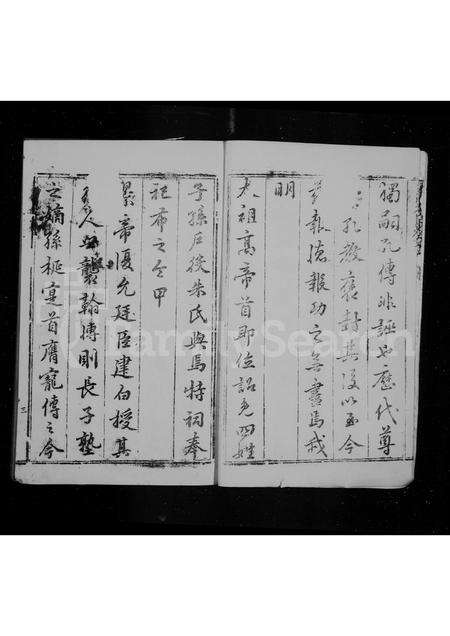 獨嗣孔傳非誣也歷代尊
孔教褒封其後以至今
報德報功之無盡焉我
明
太祖高帝首即位詔免四姓
子孫戶役朱氏與焉特祠奉
祀布之令甲
景帝復允廷臣建白授其
人世襲翰博則長子塾
之嫡孫梴寔首膺寵傳之今
三
FamilySearch